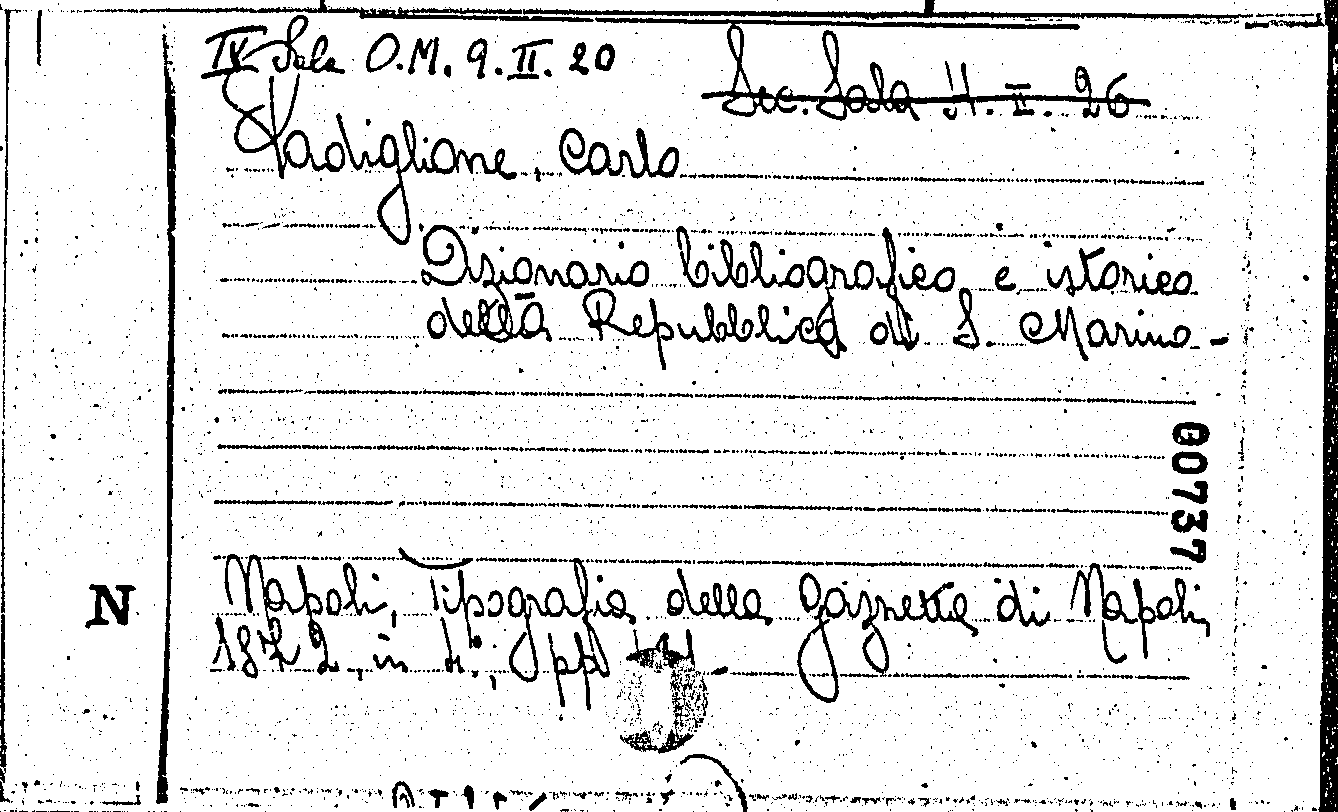 IV Sala O.M. 9. II. 20
Sec. Sala H. II. 26
Padiglione, Carlo
Dizionario bibliografico e istorico
della Repubblica di S. Marino -
00737
N
Napoli, Tipografia della Gazzetta di Napoli,
1872, in 4°, pp